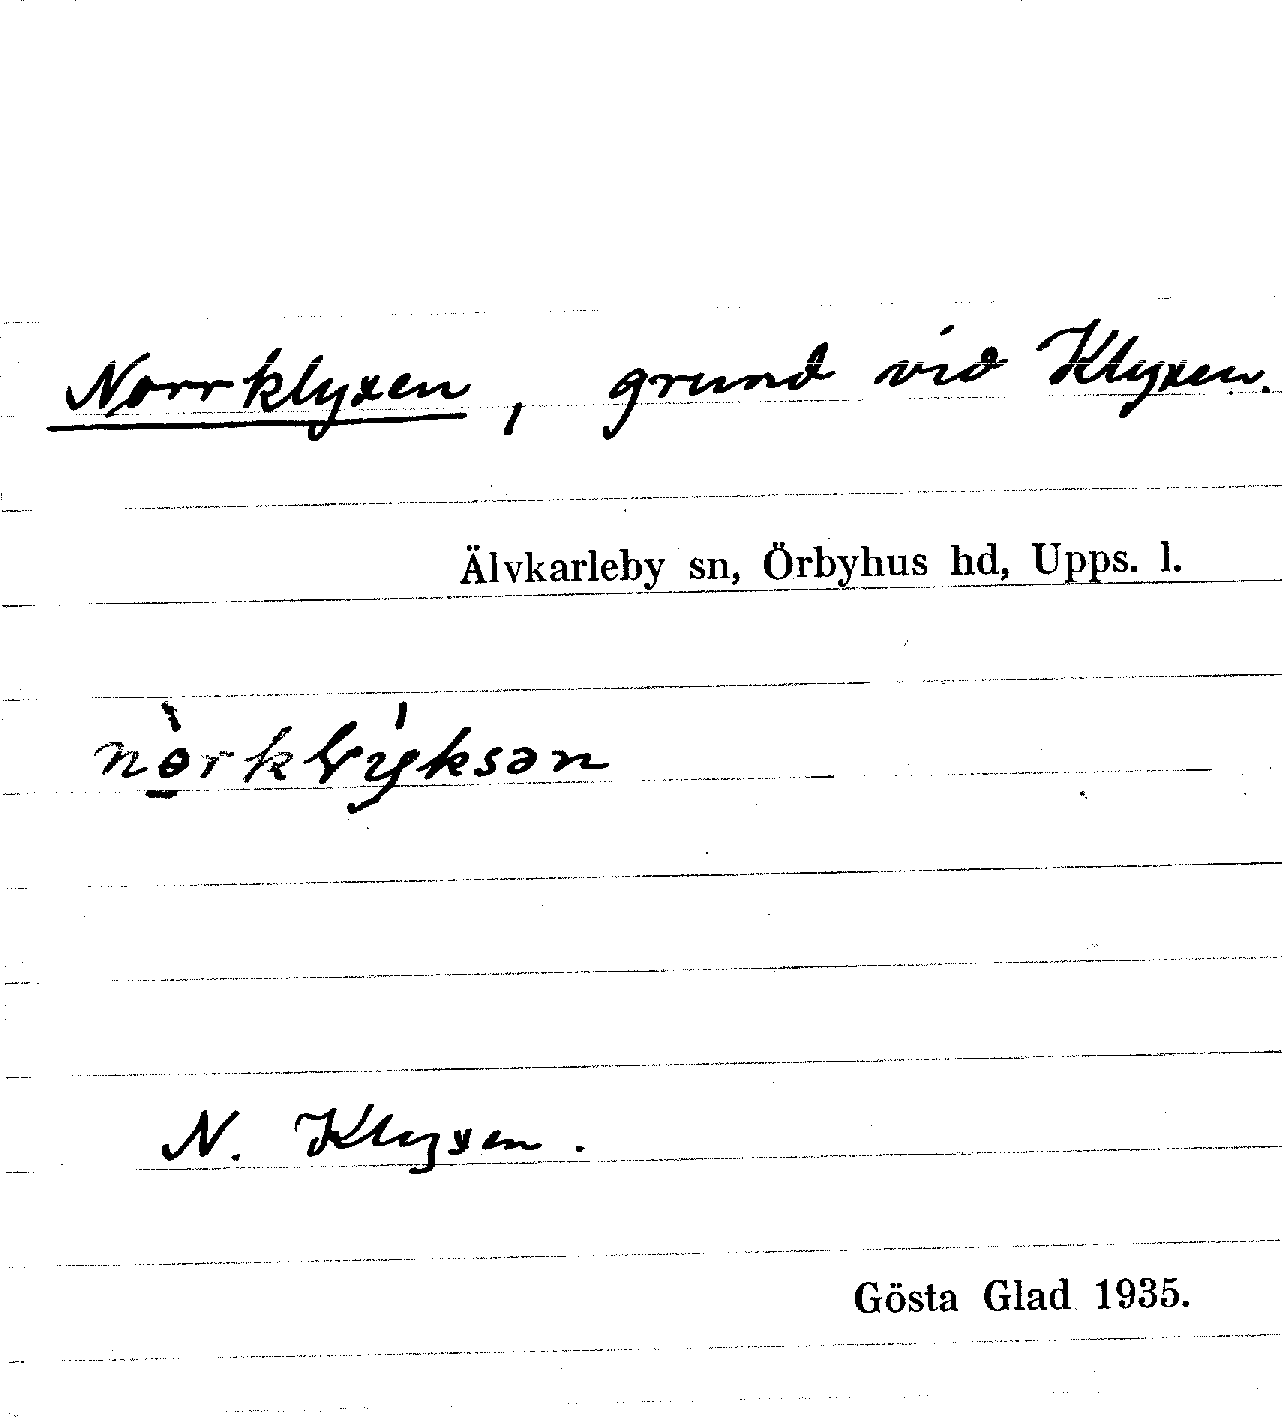 Norrklyxen, grund vid Klyxen.
Älvkarleby sn, Örbyhus hd, Upps. l.
N. Klyxen.
Gösta Glad 1935.